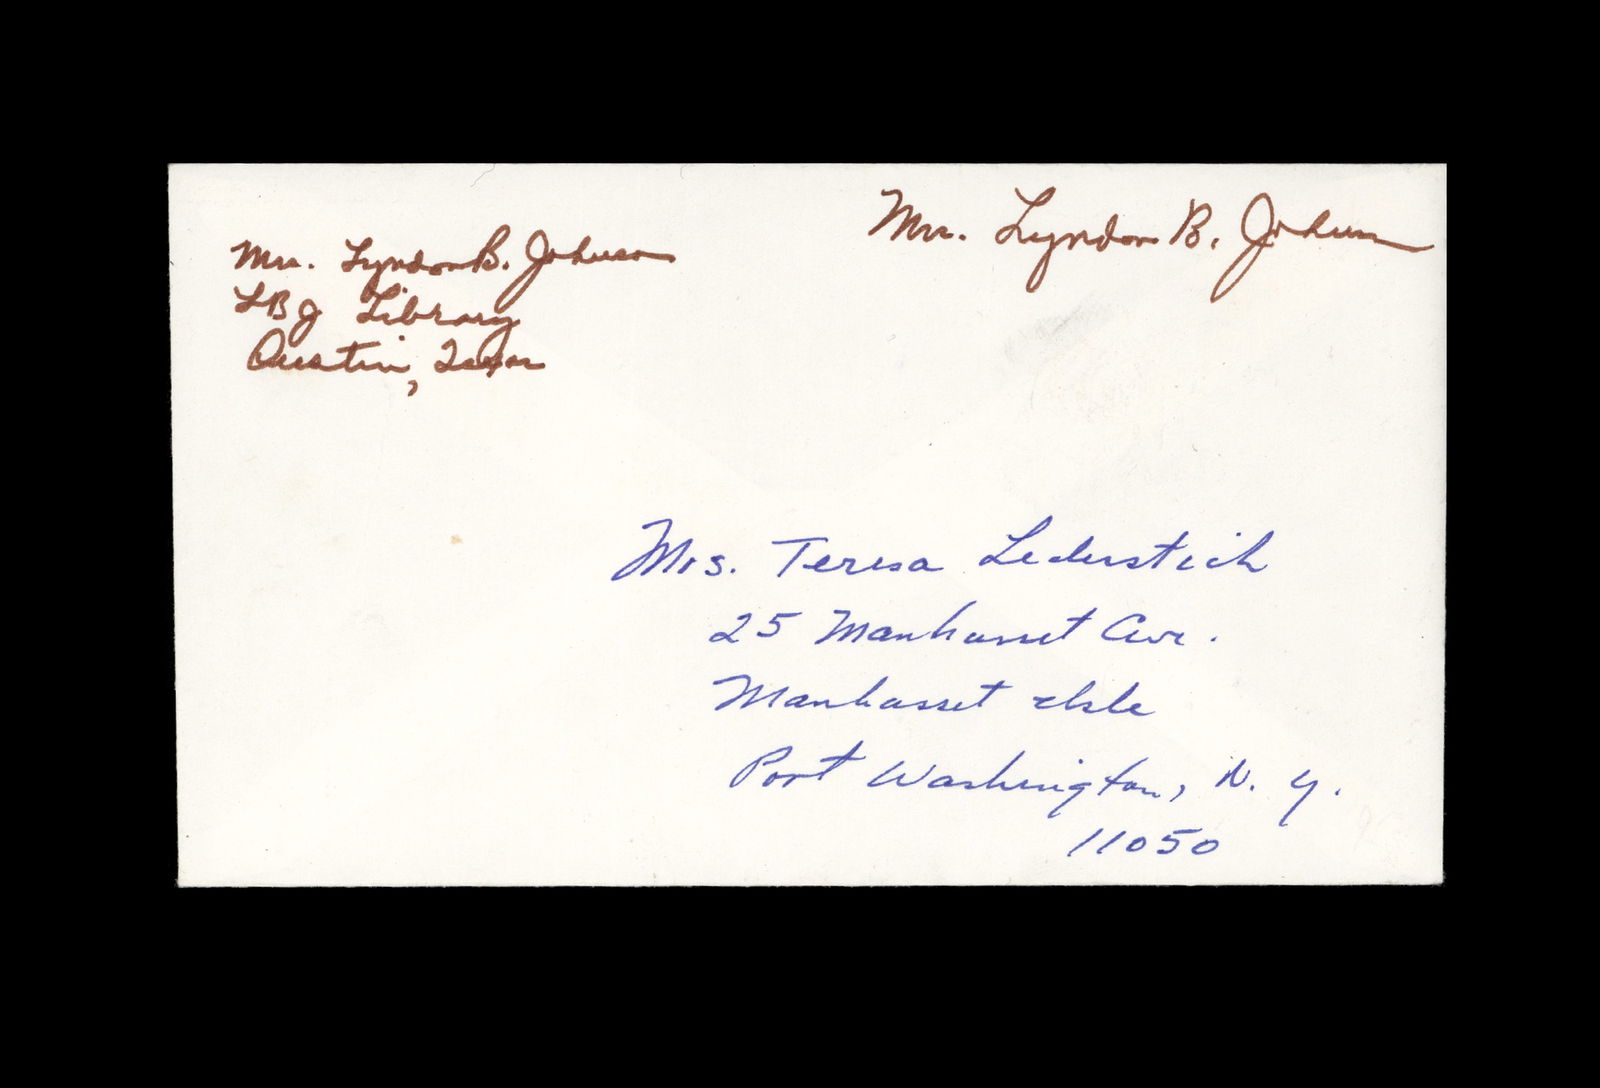 Mrs. Lyndon B. Johnson
Mrs. Lyndon B. Johnson
LBJ Library
Austin, Texas
Mrs. Teresa Lederstich
25 Manhasset Ave.
Manhasset Isle
Port Washington, N. Y.
11050